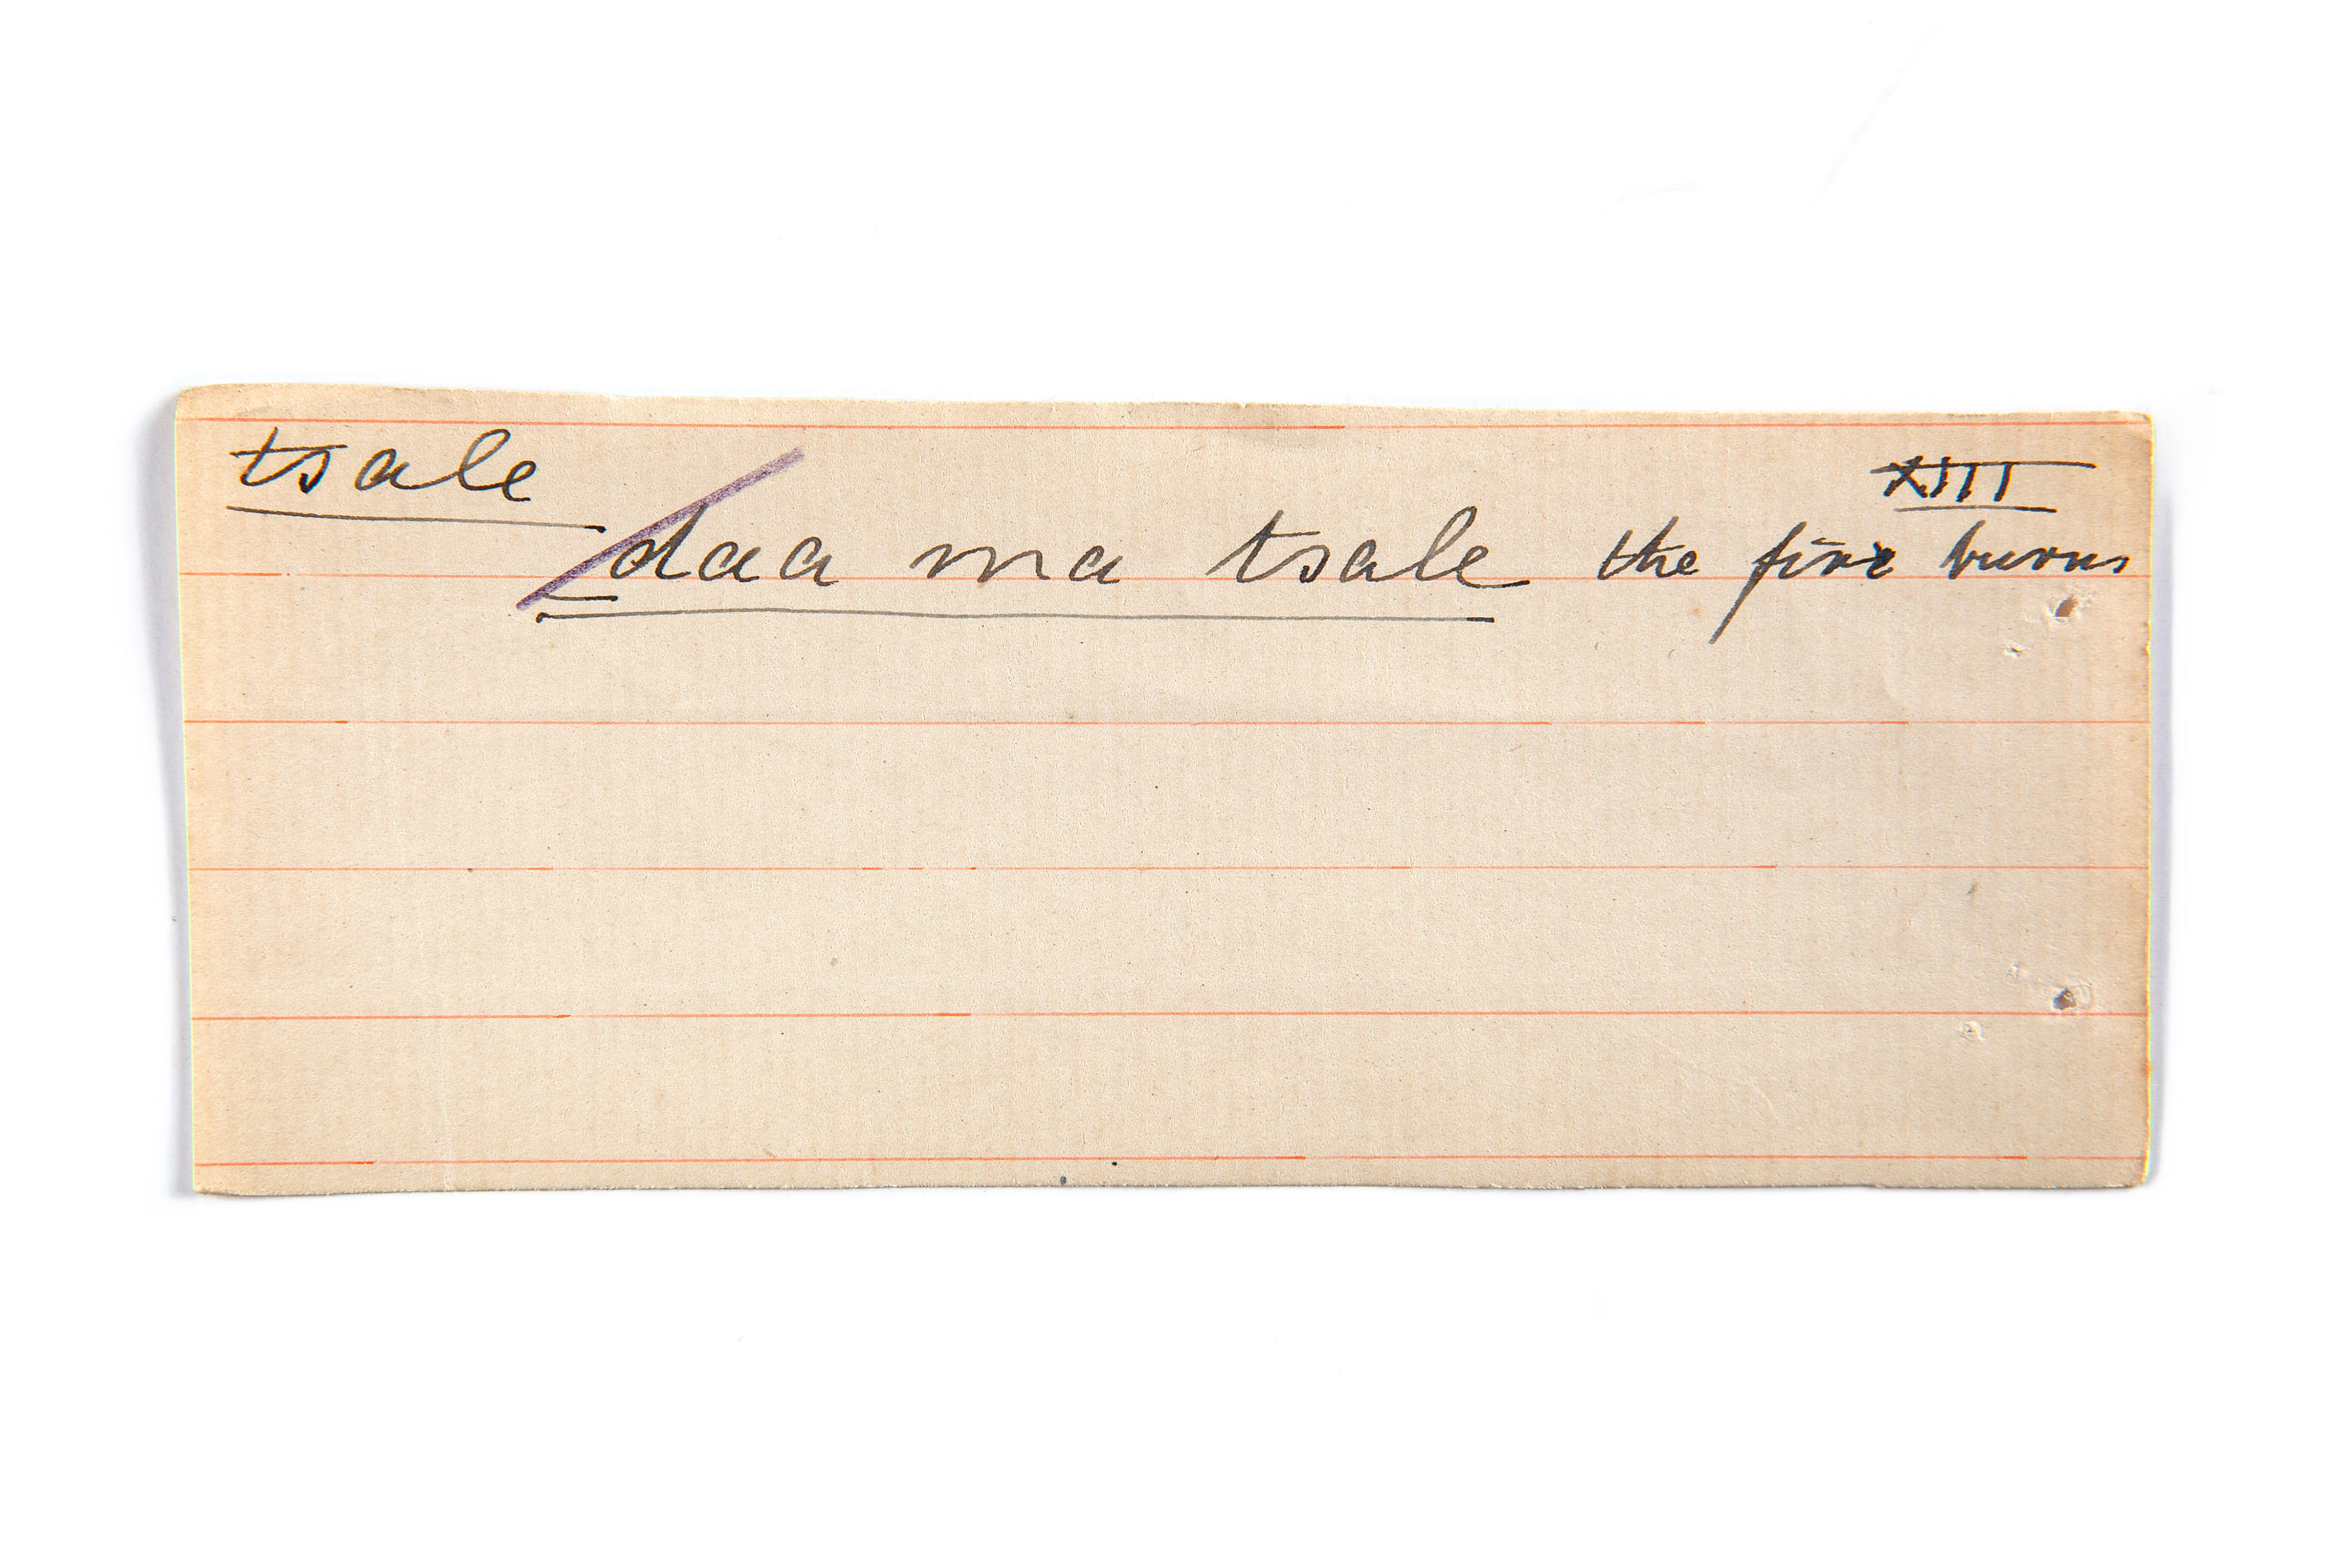 tsale XIII
daa ma tsale the fire burns